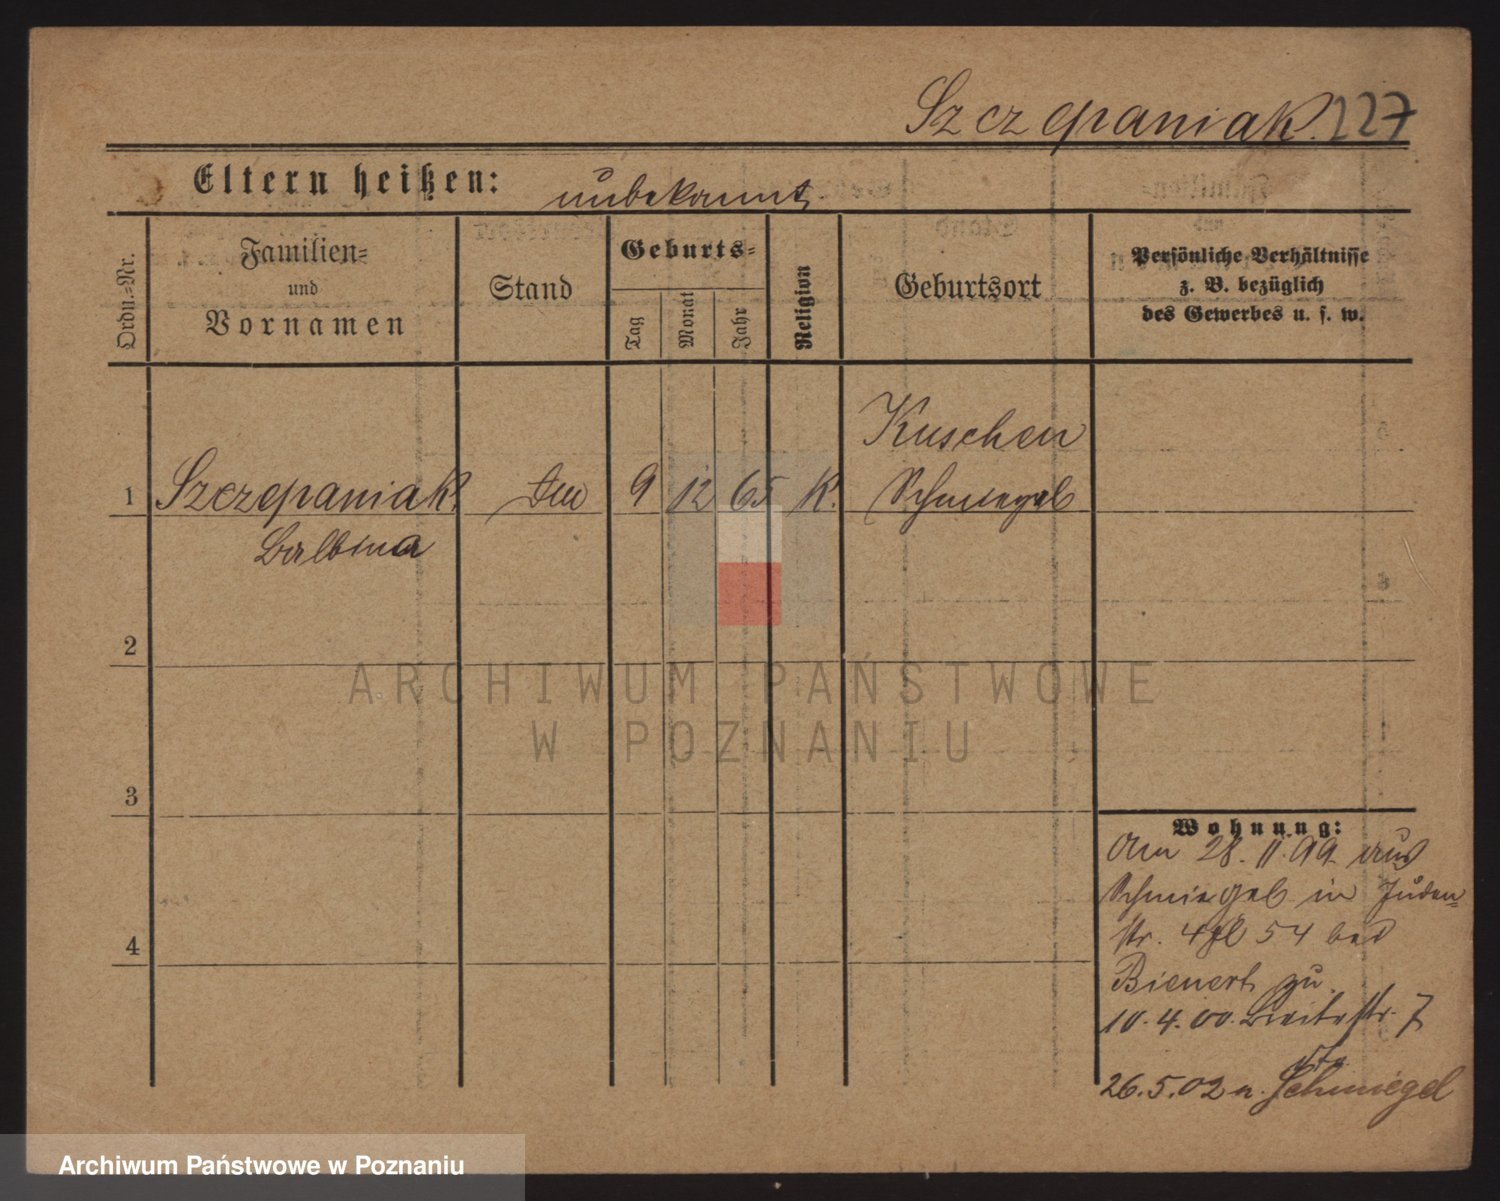 Szczepaniak. 227
Eltern heißen: unbekannt.
Ordn.-Nr.
Familien-
und
Vornamen
Stand
Geburts-
Tag
Monat
Jahr
Religion
Geburtsort
Persönliche Verhältnisse
z. B. bezüglich
des Gewerbes u. s. w.
Kuschen
1 Szczepaniak 9 12 65 K. Schmiegel
Balbina
2
3
4
ARCHIWUM PAŃSTWOWE
W POZNANIU
Wohnung:
Am 28. 11. 99 aus
Schmiegel in Juden-
str. 4 54 bei
Bienert zu.
10. 4. 00. Breitestr. 7
26. 5. 02 n. Schmiegel
Archiwum Państwowe w Poznaniu